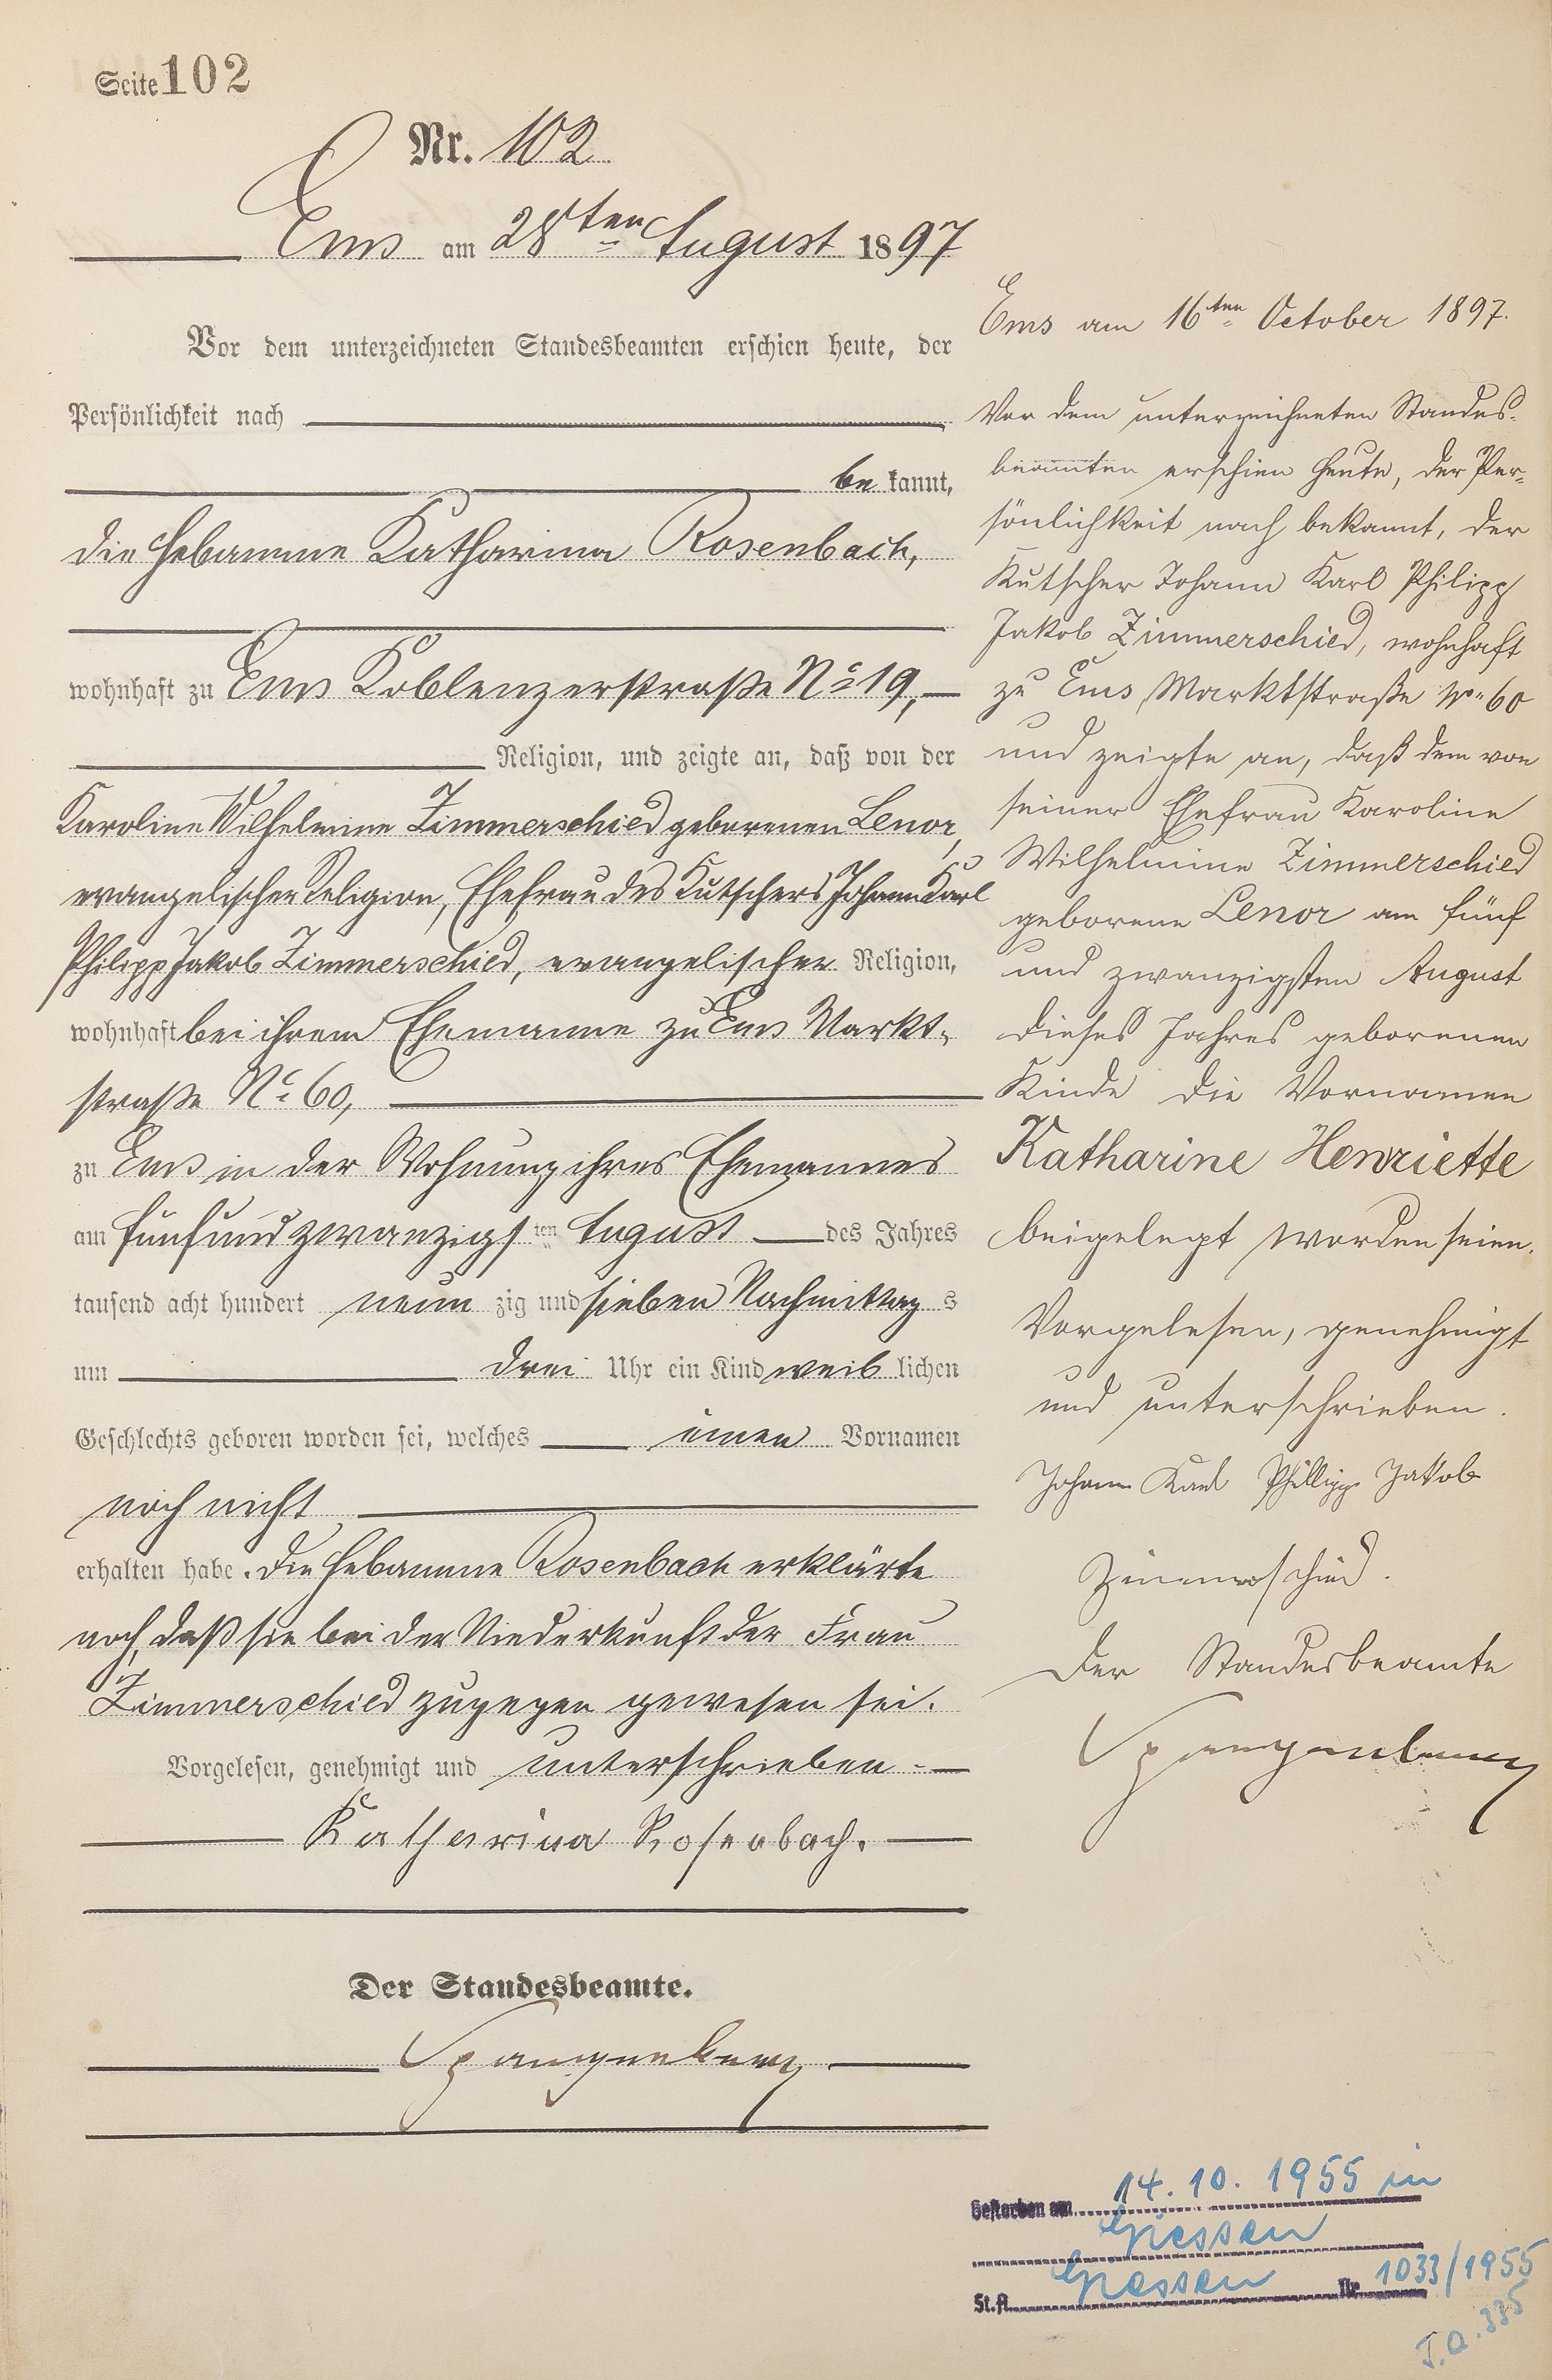 Seite 102
Nr. 102
Ems am 28ten August 1897
Vor dem unterzeichneten Standesbeamten erschien heute, der
Persönlichkeit nach
be kannt,
die Hebamme Katharina Rosenbach,
wohnhaft zu Ems Koblenzerstraße No 19,
Religion, und zeigte an, daß von der
Karoline Wilhelmine Zimmerschied geborenen Lenor,
evangelischer Religion, Ehefrau des Kutschers Johann Karl
Philipp Jakob Zimmerschied, evangelischer Religion,
wohnhaft bei ihrem Ehemanne zu Ems Markt-
straße No 60,
zu Ems in der Wohnung ihres Ehemannes
am fünfundzwanzigsten August des Jahres
tausend acht hundert neun zig und sieben Nachmittag s
um drei Uhr ein Kind weib lichen
Geschlechts geboren worden sei, welches einen Vornamen
noch nicht
erhalten habe. Die Hebamme Rosenbach erklärte
noch, daß sie bei der Niederkunft der Frau
Zimmerschied zugegen gewesen sei.
Vorgelesen, genehmigt und unterschrieben.
Katharina Rosenbach.
Der Standesbeamte.
Spangenberg
Ems am 16ten October 1897.
Vor dem unterzeichneten Standes-
beamten erschien heute, der Per-
sönlichkeit nach bekannt, der
Kutscher Johann Karl Philipp
Jakob Zimmerschied, wohnhaft
zu Ems, Marktstraße No 60
und zeigte an, daß dem von
seiner Ehefrau Karoline
Wilhelmine Zimmerschied
geborene Lenor am fünf
und zwanzigsten August
dieses Jahres geborenen
Kinde die Vornamen
Katharine Henriette
beigelegt worden seien.
Vorgelesen, genehmigt
und unterschrieben.
Johann Karl Phillipp Jakob
Zimmerschied.
Der Standesbeamte
Spangenberg
Gestorben am 14. 10. 1955 in
Giessen
St.A. Giessen Nr. 1033/1955
J.a. 335